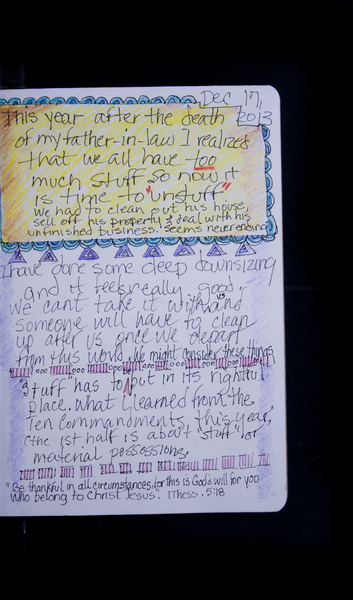 Dec 17,
2013
This year after the death
of my father-in-law I realized
that we all have too
much stuff so now it
is time to "unstuff"
we had to clean out his house,
sell off his property & deal with his
unfinished business. Seems never ending
I have done some deep downsizing
and it feels really good,
we can't take it with us and
someone will have to clean
up after us once we depart
from this world. We might consider these things
"Stuff" has to put in its rightful
place. What I learned from the
Ten Commandments this year,
the 1st half is about "stuff" or
material possessions,
"Be thankful in all circumstances, for this is Gods will for you
who belong to Christ Jesus". 1Thess. 5:18